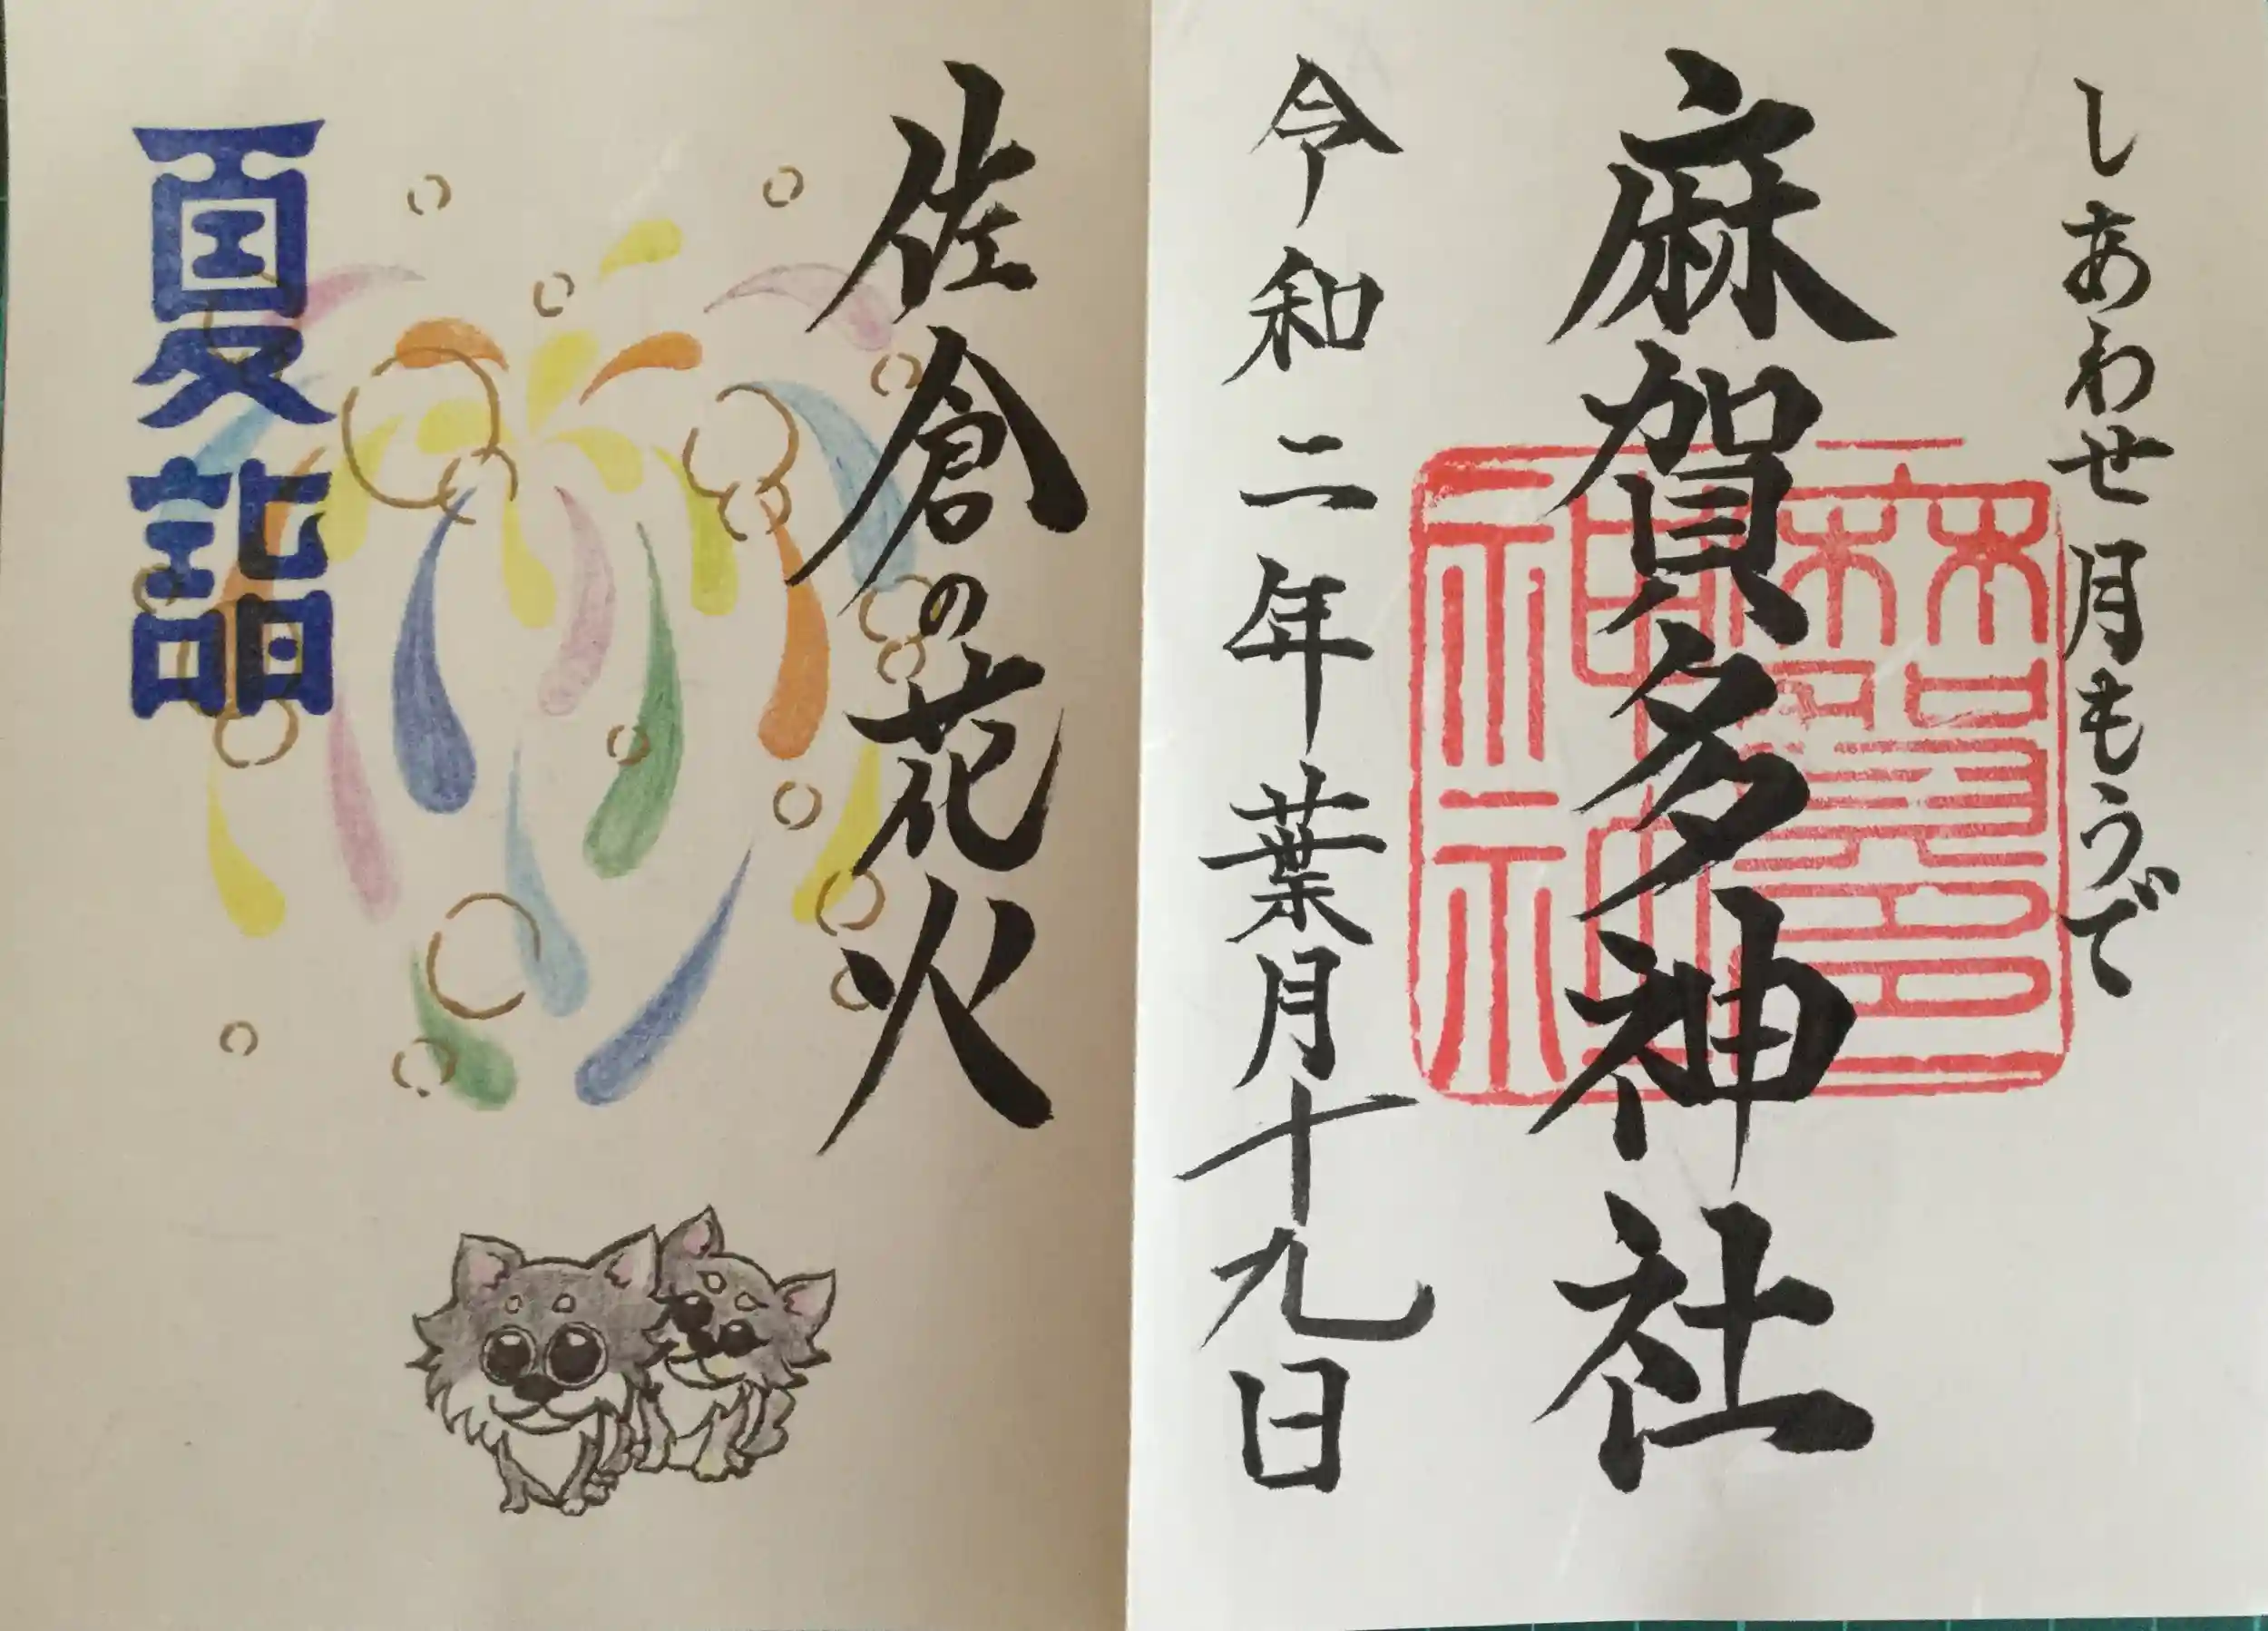 しあわせ月もうで
麻賀多神社
麻賀多
神社
令和二年葉月十九日
佐倉の花火
夏詣